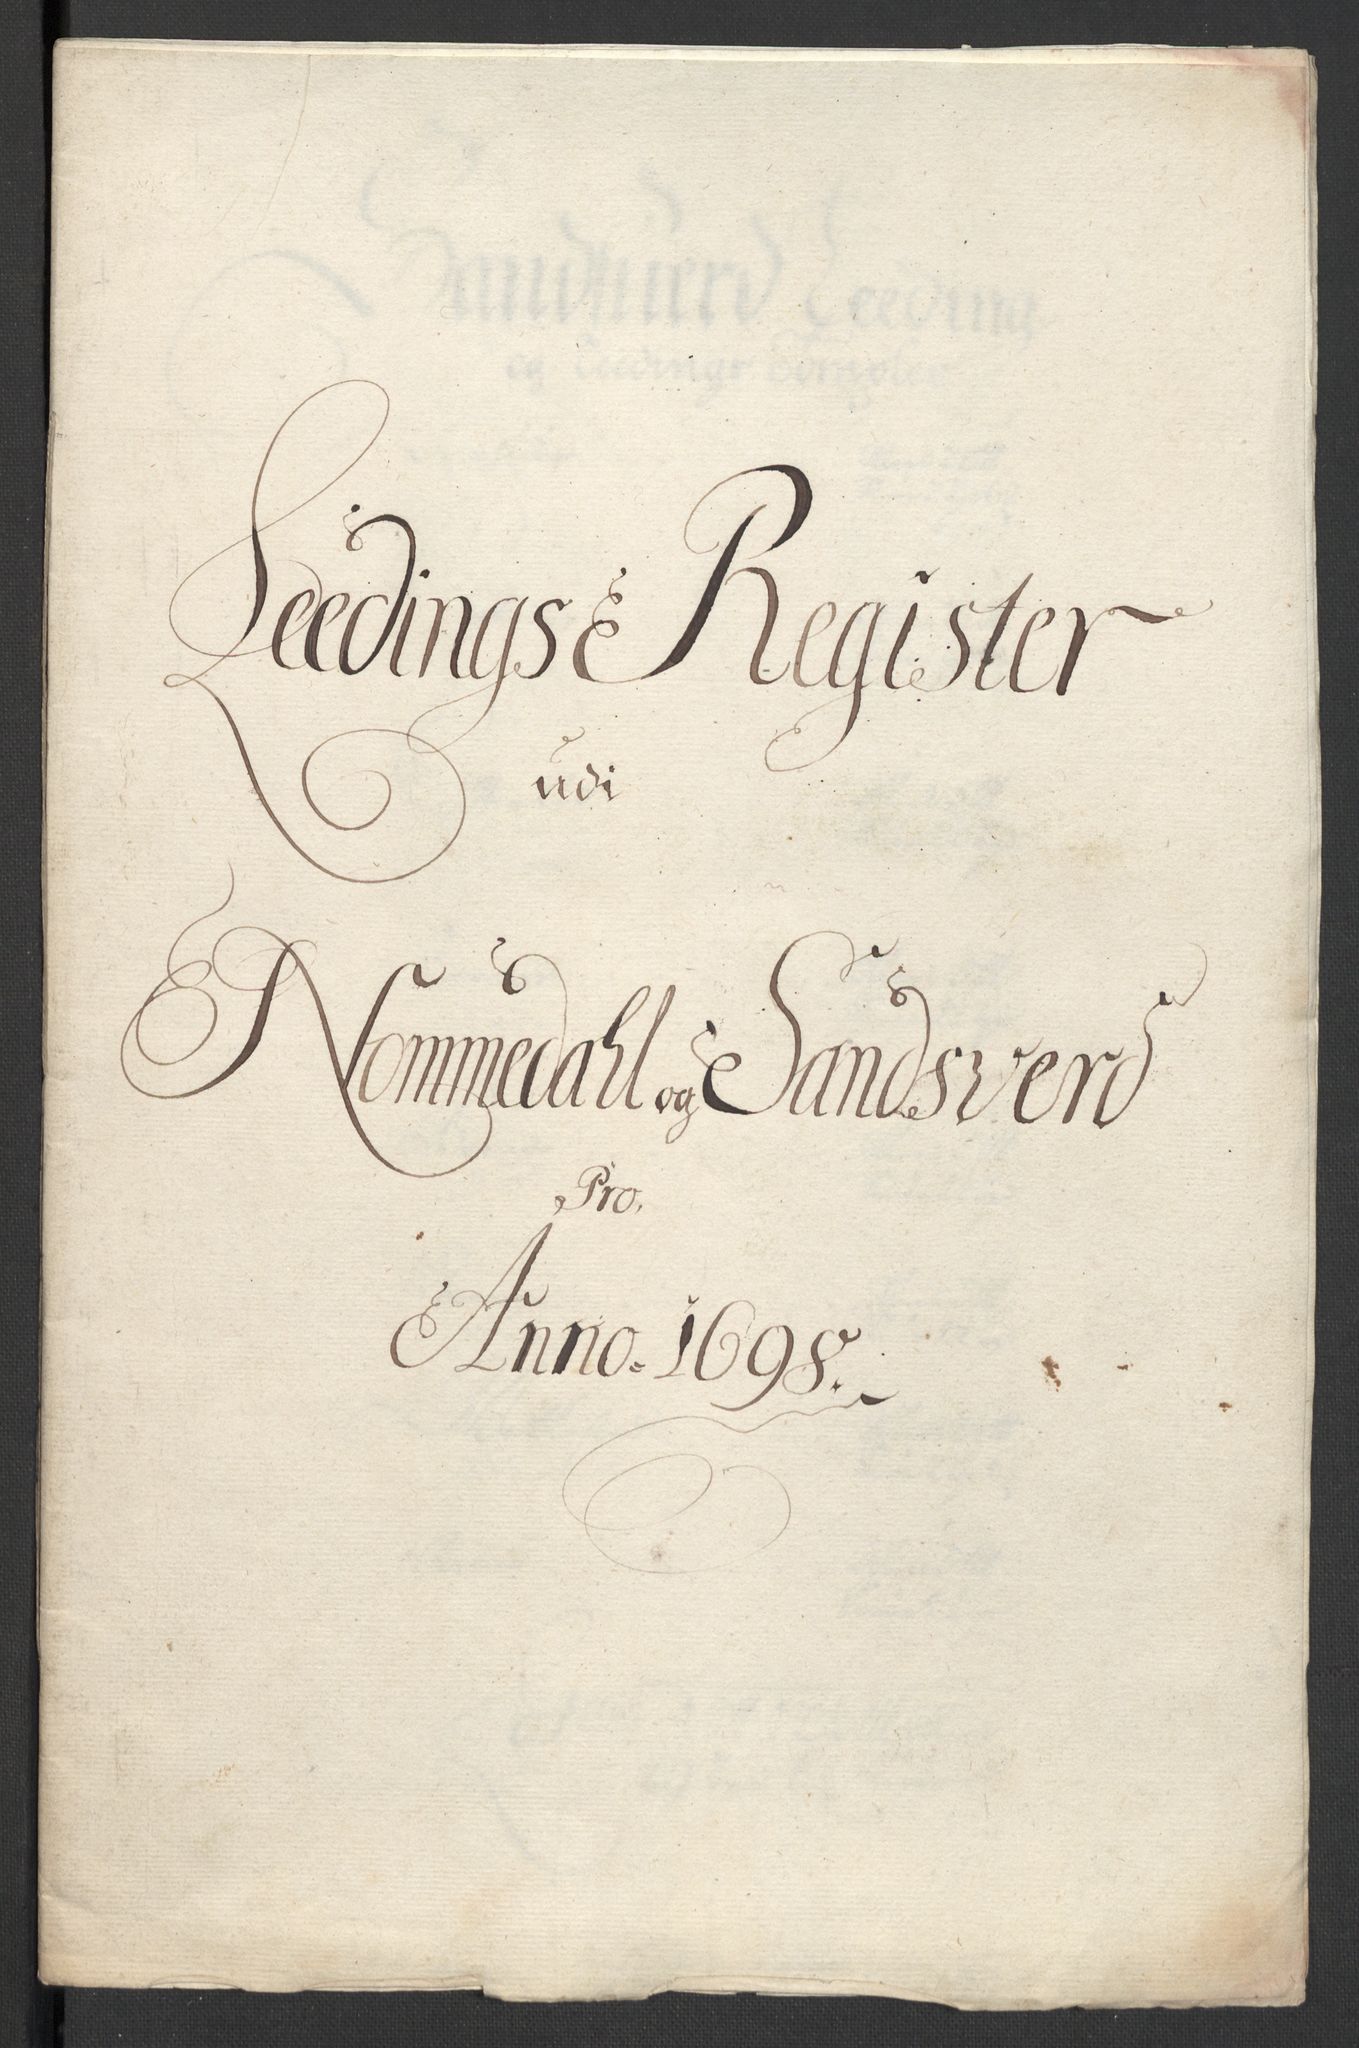 Leedings Register
udi
Nommedahl og Sandsverd
Pro.
Anno. 1698.